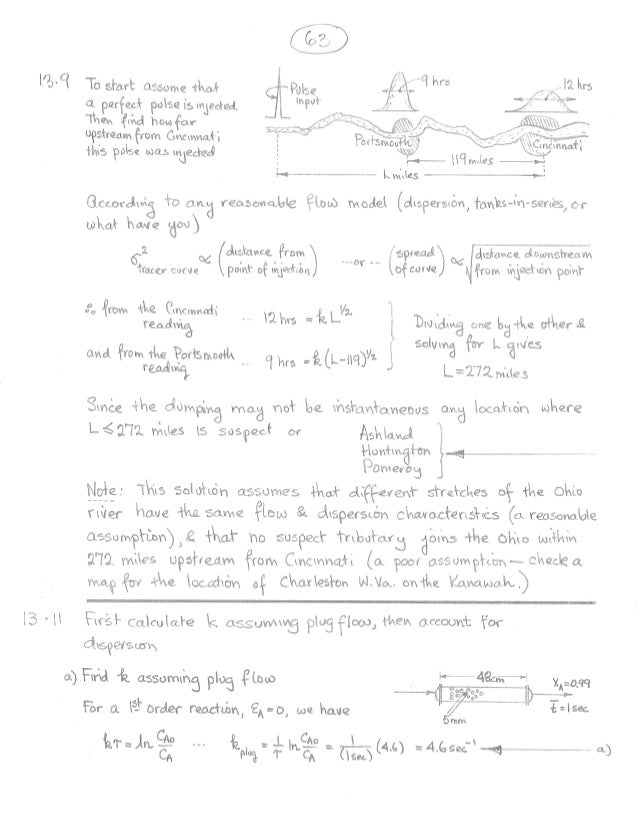 63
13.9 To start assume that
a perfect pulse is injected.
Then find how far
upstream from Cincinnati
this pulse was injected
Pulse
input
9 hrs
12 hrs
Portsmouth
Cincinnati
119 miles
L miles
According to any reasonable flow model (dispersion, tanks-in-series, or
what have you)
σ² tracer curve ∝ (distance from point of injection) ...or... (spread of curve) ∝ √(distance downstream from injection point)
∴ from the Cincinnati
reading ... 12 hrs = kL^1/2
and from the Portsmouth
reading ... 9 hrs = k(L-119)^1/2
Dividing one by the other &
solving for L gives
L=272 miles
Since the dumping may not be instantaneous any location where
L≤272 miles is suspect or
Ashland
Huntington
Pomeroy
Note: This solution assumes that different stretches of the Ohio
river have the same flow & dispersion characteristics (a reasonable
assumption), & that no suspect tributary joins the Ohio within
272 miles upstream from Cincinnati (a poor assumption — check a
map for the location of Charleston W.Va. on the Kanawah.)
13.11 First calculate k assuming plug flow, then account for
dispersion
a) Find k assuming plug flow
For a 1st order reaction, εA=0, we have
48cm
5mm
XA=0.99
t̄=1sec
kτ = ln CAo/CA ... kplug = 1/τ ln CAo/CA = 1/(1sec) (4.6) = 4.6 sec⁻¹ a)